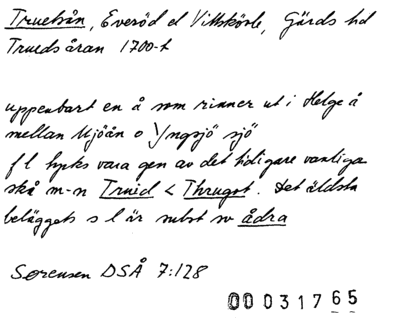 Truedsån, Everöd el Vittskövle, Gärds hd
Trueds åran 1700-t
uppenbart en å som rinner ut i Helge å
mellan Mjöån o Yngsjö sjö
f l tycks vara gen av det tidigare vanliga
skå m-n Truid < Thrugot. Det äldsta
beläggets s l är subst sv ådra
Sørensen DSÅ 7:128
00031765